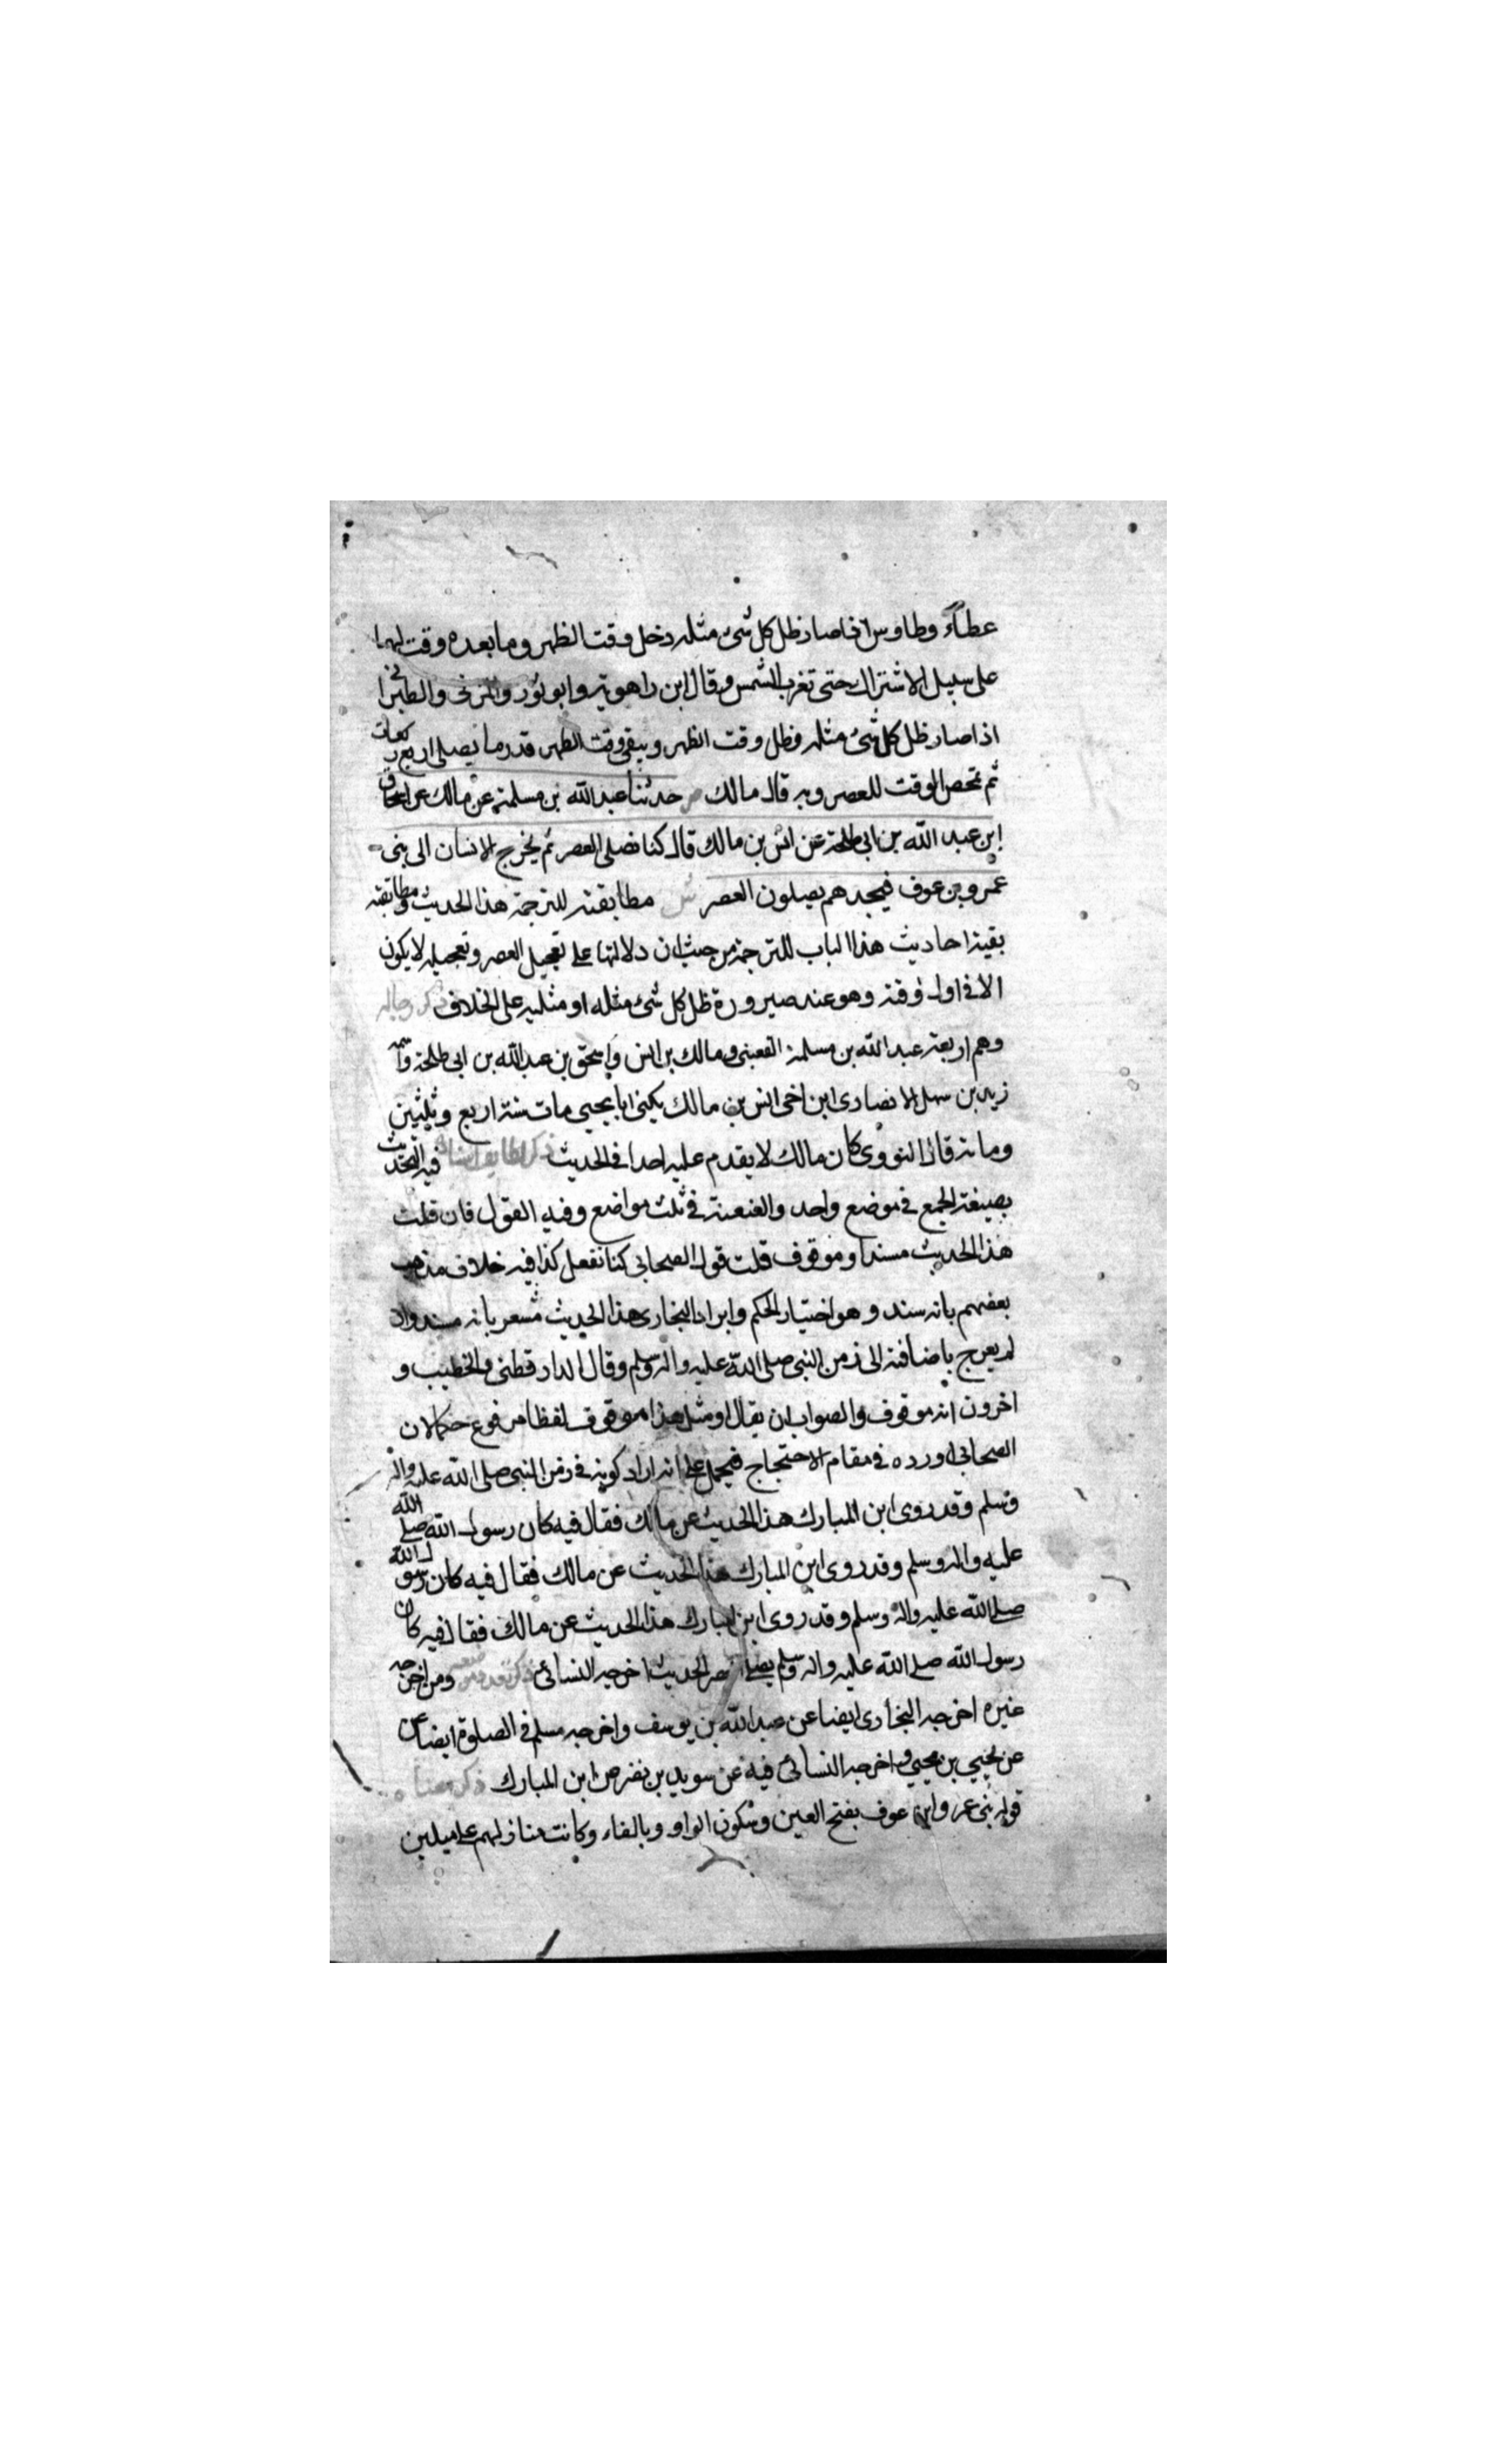 عطاء وطاوس اذا صار ظل كل شئ مثله دخل وقت الظهر وما بعده وقت لهما
على سبيل الاشتراك حتى تغرب الشمس وقال ابن راهويه وابو ثور والمزنى والطبرا
اذا صار ظل كل شئ مثله فظل وقت الظهر ويبقى وقت الظهر قدر ما يصلى اربع ركعات
ثم تمحص الوقت للعصر وبه قال مالك ص حدثنا عبد الله بن مسلمة عن مالك عن اسحاق
ابن عبد الله بن ابى طلحة عن انس بن مالك قال كنا نصلى العصر ثم يخرج الانسان الى بنى
عمرو بن عوف فيجدهم يصلون العصر ش مطابقته للترجمة هذا الحديث ومطابقته
بقية احاديث هذا الباب للترجمة من حيث ان دلالتها على تعجيل العصر وتعجيله لا يكون
الا فى اول وقته وهو عند صيرورة ظل كل شئ مثله او مثليه على الخلاف ذكر رجاله
وهم اربعة عبد الله بن مسلمة القعنبى ومالك بن انس واسحق بن عبد الله بن ابى طلحة واسمه
زيد بن سهل الانصارى ابن اخى انس بن مالك يكنى ابا يحيى مات سنة اربع وثلثين
ومائة قال النووى كان مالك لا يقدم عليه احدا فى الحديث ذكر لطايف اسناده فيه التحديث
بصيغة الجمع فى موضع واحد والعنعنة فى ثلث مواضع وفيه القول فان قلت
هذا الحديث مسند او موقوف قلت قول الصحابى كنا نفعل كذا فيه خلاف مذهب
بعضهم بانه سند وهو اختيار الحكم وايراد البخارى هذا الحديث مشعر بانه مسند وان
لم يعرج باضافته الى زمن النبى صلى الله عليه واله وسلم وقال الدارقطنى والخطيب و
اخرون انه موقوف والصواب ان يقال او مثل هذا موقوف لفظا مرفوع حكما لان
الصحابى اورده فى مقام الاحتجاج فيحمل على انه اراد كونه فى زمن النبى صلى الله عليه واله
وسلم وقد روى ابن المبارك هذا الحديث عن مالك فقال فيه كان رسول الله صلى الله
عليه واله وسلم وقد روى ابن المبارك هذا الحديث عن مالك فقال فيه كان رسول الله
صلى الله عليه واله وسلم وقد روى ابن المبارك هذا الحديث عن مالك فقال فيه كان
رسول الله صلى الله عليه واله وسلم يصلى العصر الحديث اخرجه النسائى ذكر تعدد موضعه ومن اخرجه
غيره اخرجه البخارى ايضا عن عبد الله بن يوسف واخرجه مسلم فى الصلوة ايضا عن
عن يحيى بن يحيى واخرجه النسائى فيه عن سويد بن نصر عن ابن المبارك ذكر معناه
قوله بنى عمرو ابن عوف بفتح العين وسكون الواو وبالفاء وكانت منازلهم على ميلين